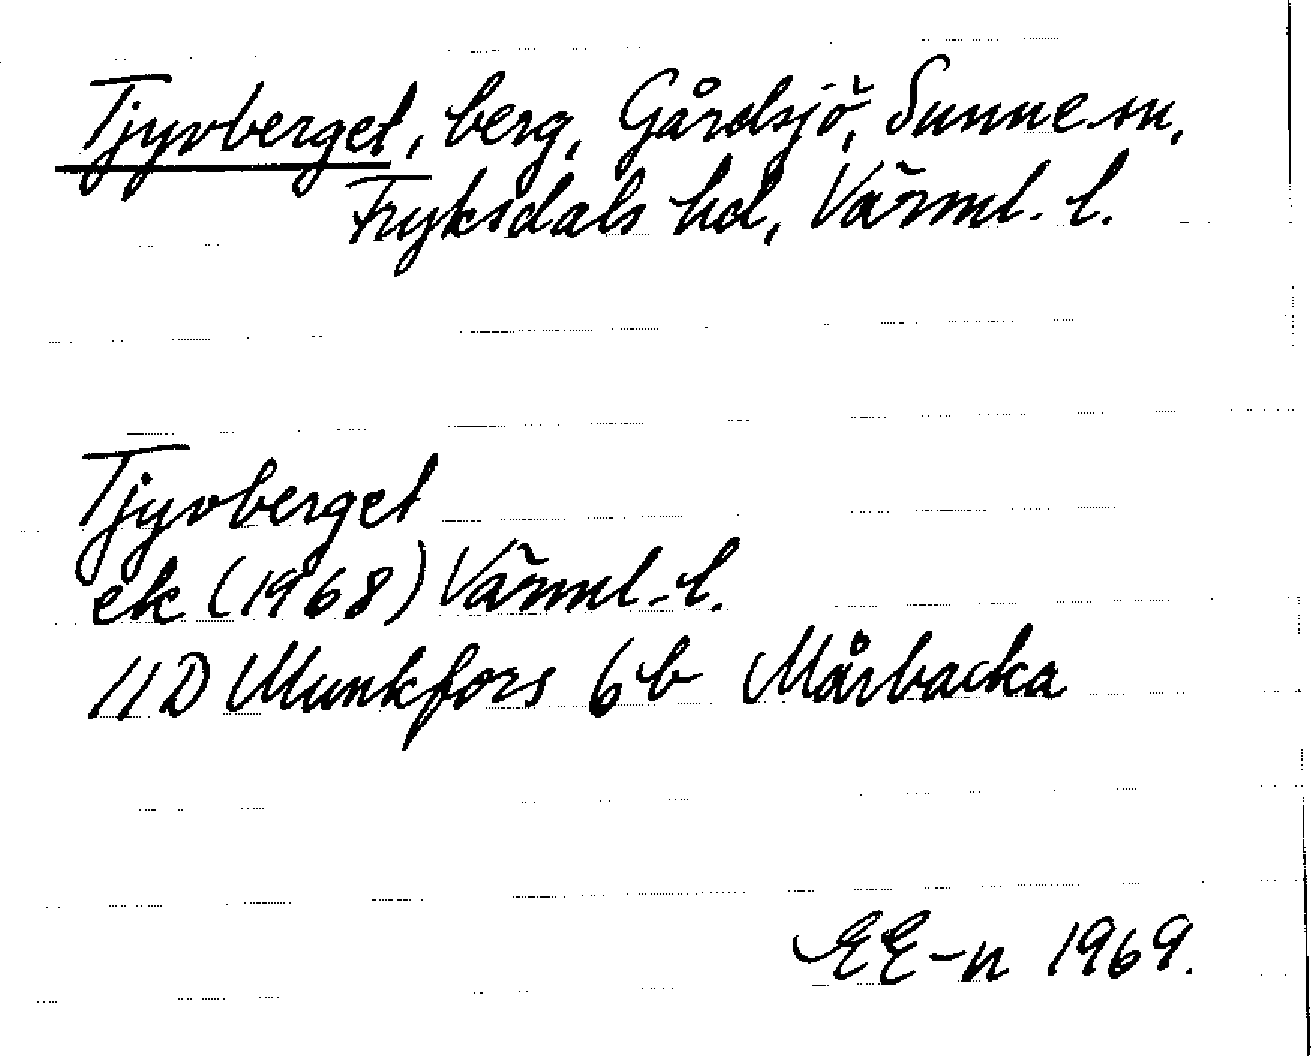 Tjyvberget, berg, Gårdsjö, Sunne sn,
Fryksdals hd, Värml. l.
Tjyvberget
ek (1968) Värml. l.
11D Munkfors 6b Mårbacka
EE-n 1969.